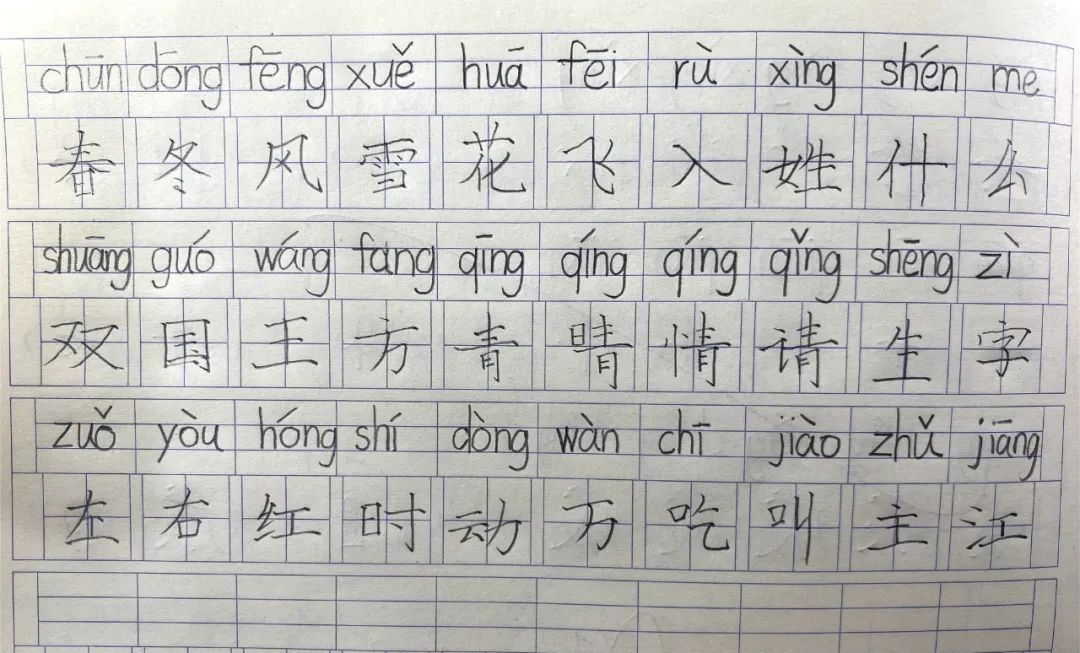 chūn dōng fēng xuě huā fēi rù xìng shén me
春 冬 风 雪 花 飞 入 姓 什 么
shuāng guó wáng fang qīng qíng qíng qǐng shēng zì
双 国 王 方 青 晴 情 请 生 字
zuǒ yòu hóng shí dòng wàn chī jiào zhǔ jiāng
左 右 红 时 动 万 吃 叫 主 江